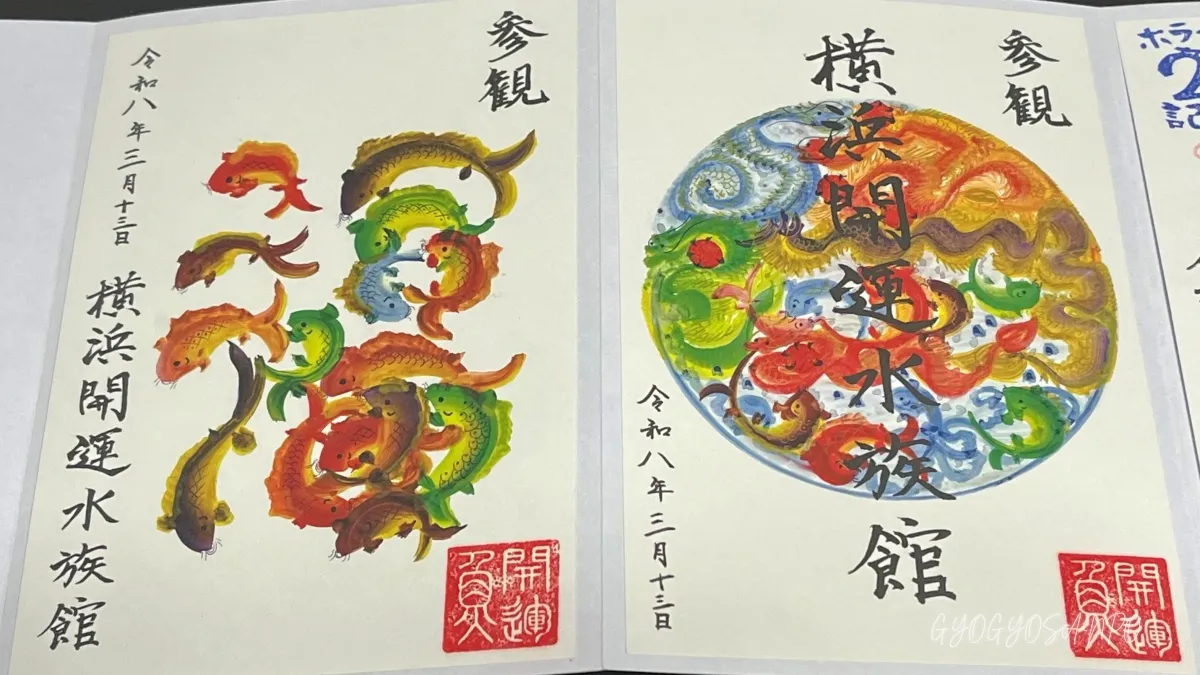 参観
福
令和八年三月十三日
横浜開運水族館
開運
参観
横浜開運水族館
令和八年三月十三日
開運
ホラ
2
記